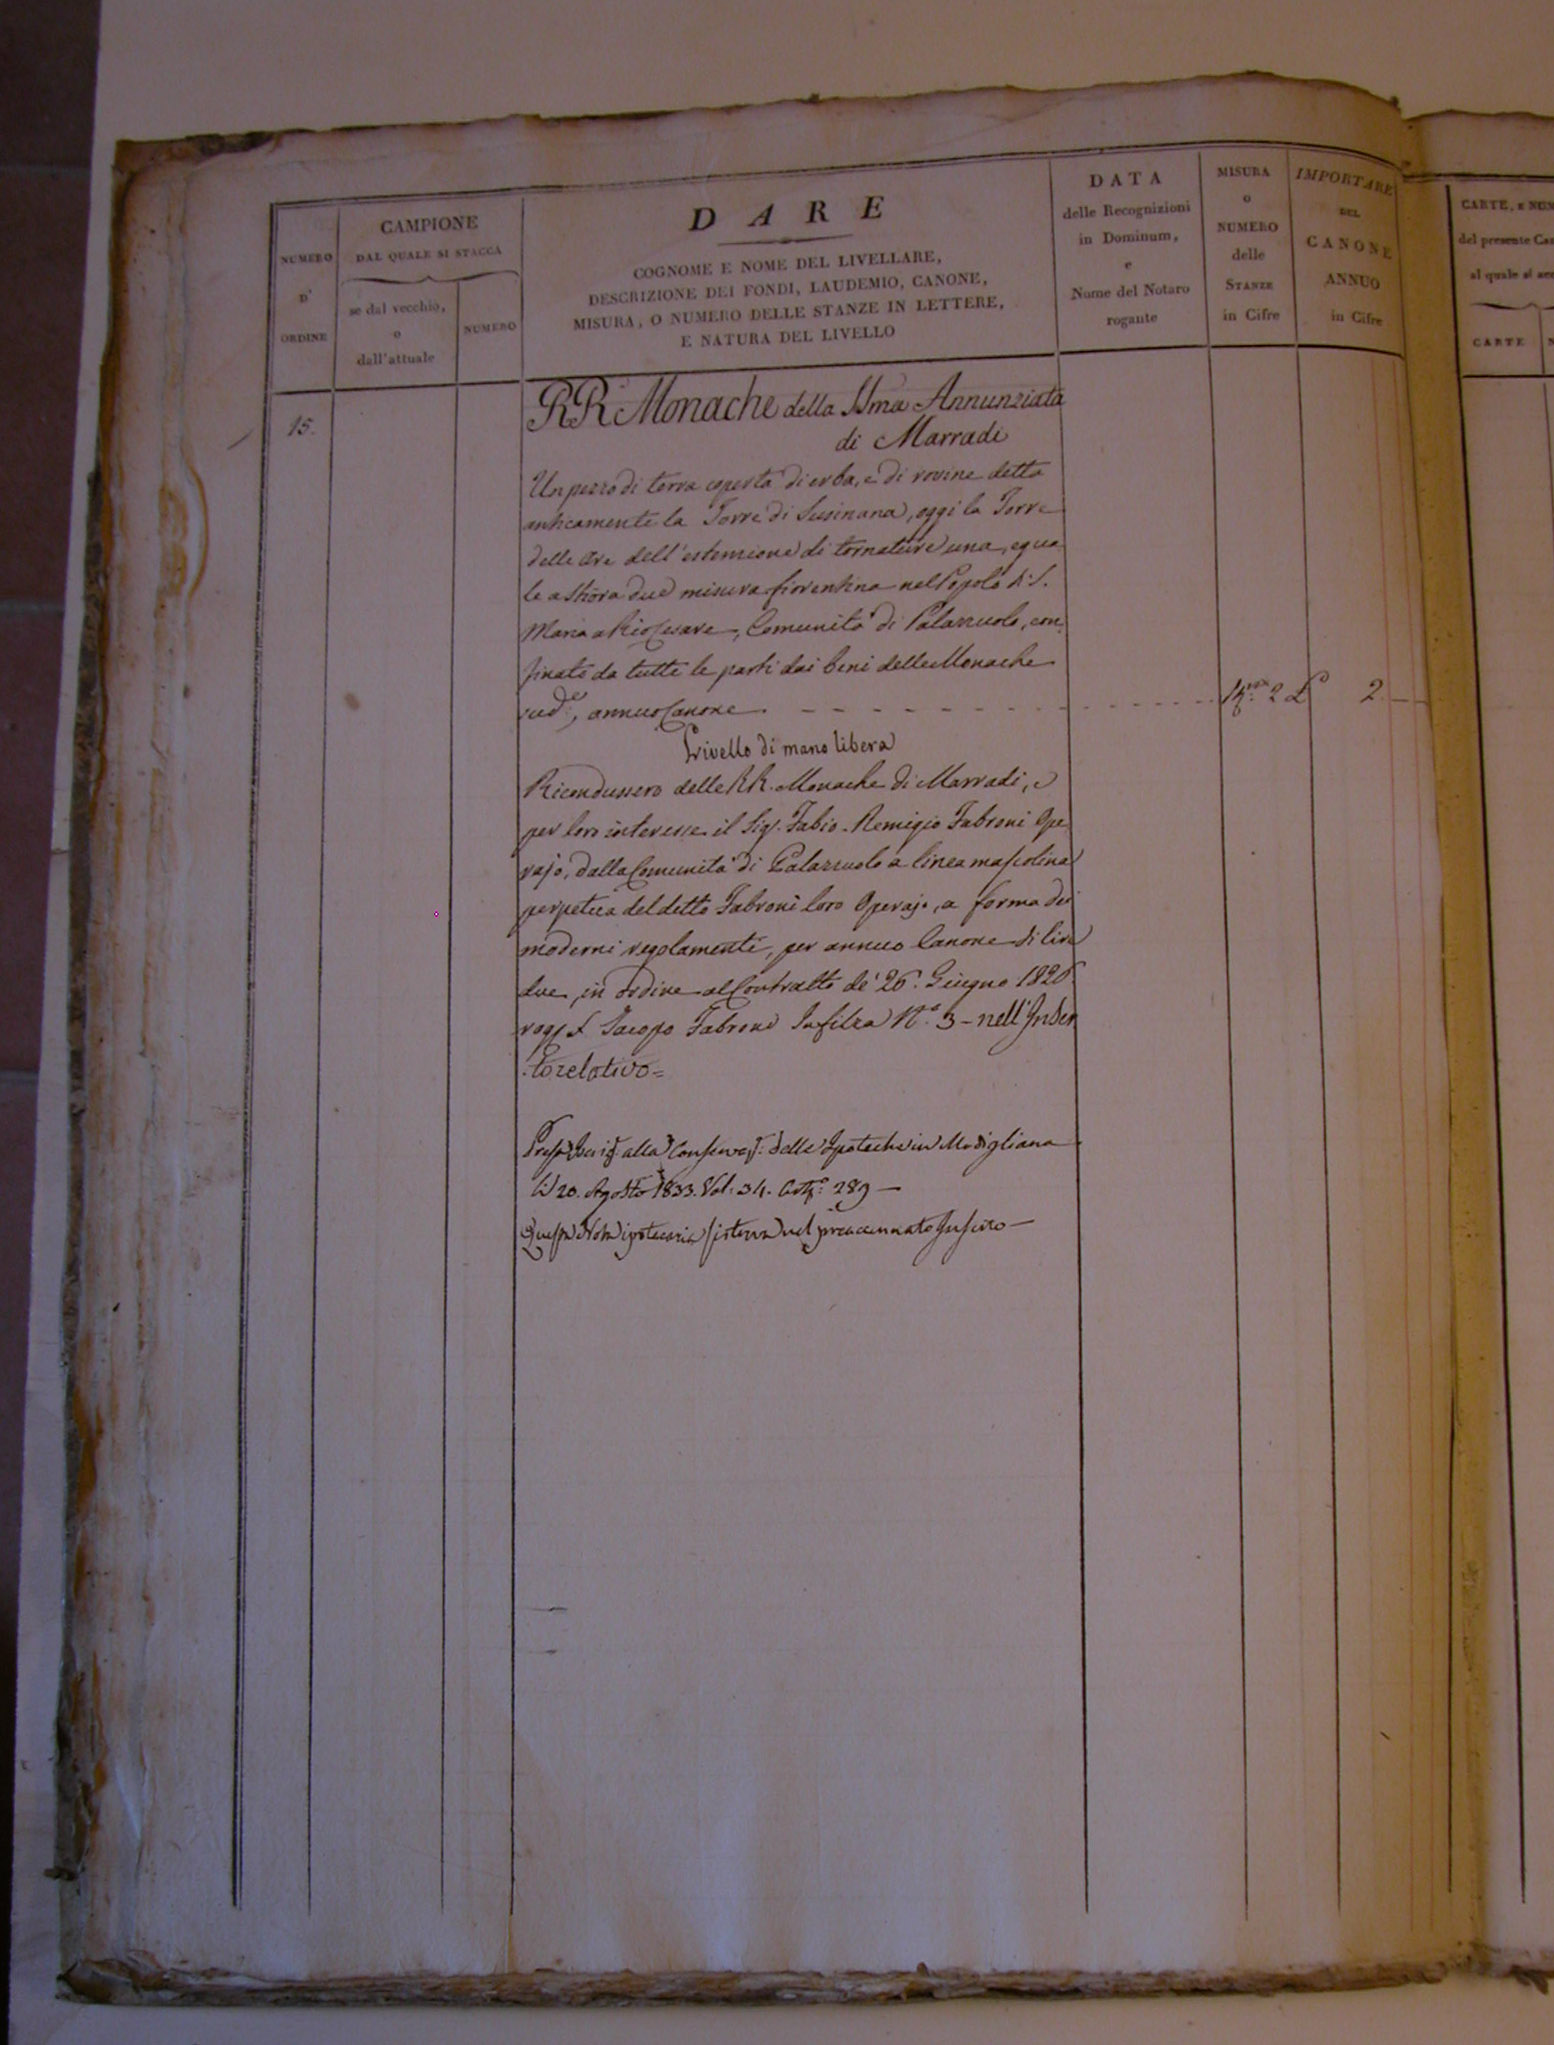 NUMERO
D'
ORDINE
CAMPIONE
DAL QUALE SI STACCA
se dal vecchio,
o
dall'attuale
NUMERO
DARE
COGNOME E NOME DEL LIVELLARE,
DESCRIZIONE DEI FONDI, LAUDEMIO, CANONE,
MISURA, O NUMERO DELLE STANZE IN LETTERE,
E NATURA DEL LIVELLO
DATA
delle Recognizioni
in Dominum,
e
Nome del Notaro
rogante
MISURA
o
NUMERO
delle
STANZE
in Cifre
IMPORTARE
DEL
CANONE
ANNUO
in Cifre
CARTE, E
del presente
al quale si
CARTE
15.
RR Monache della SSma Annunziata
di Marradi
Un pezzo di terra coperta di erba, e di rovine detta
anticamente la Torre di Susinana, oggi la Torre
delle Ore dell'estensione di tornature una, egua
le a Stiora due misura fiorentina nel Popolo di S.
Maria a Rio Cesare, Comunità di Palazzuolo, con,
finato da tutte le parti dai beni delle Monache
sud.e, annuo Canone. - - - - - - - - - - 2 £ 2 -
Livello di mano libera
Ricondussero delle RR. Monache di Marradi, e
per loro interesse il Sig. Fabio Remigio Fabroni Ope
rajo, dalla Comunità di Palazzuolo a linea mascolina
perpetua del detto Fabroni loro Operajo, a forma dei
moderni regolamenti, per annuo Canone di lire
due, in ordine al Contratto de' 26. Giugno 1826.
Jacopo Fabroni Infilza N.° 3 - nell'Inser
-to relativo=
alla delle Ipoteche in Modigliana
li 20. Agosto 1833. Vol. 34. 289 —
Questa Nota ipotecaria nel preaccennato Inserto —